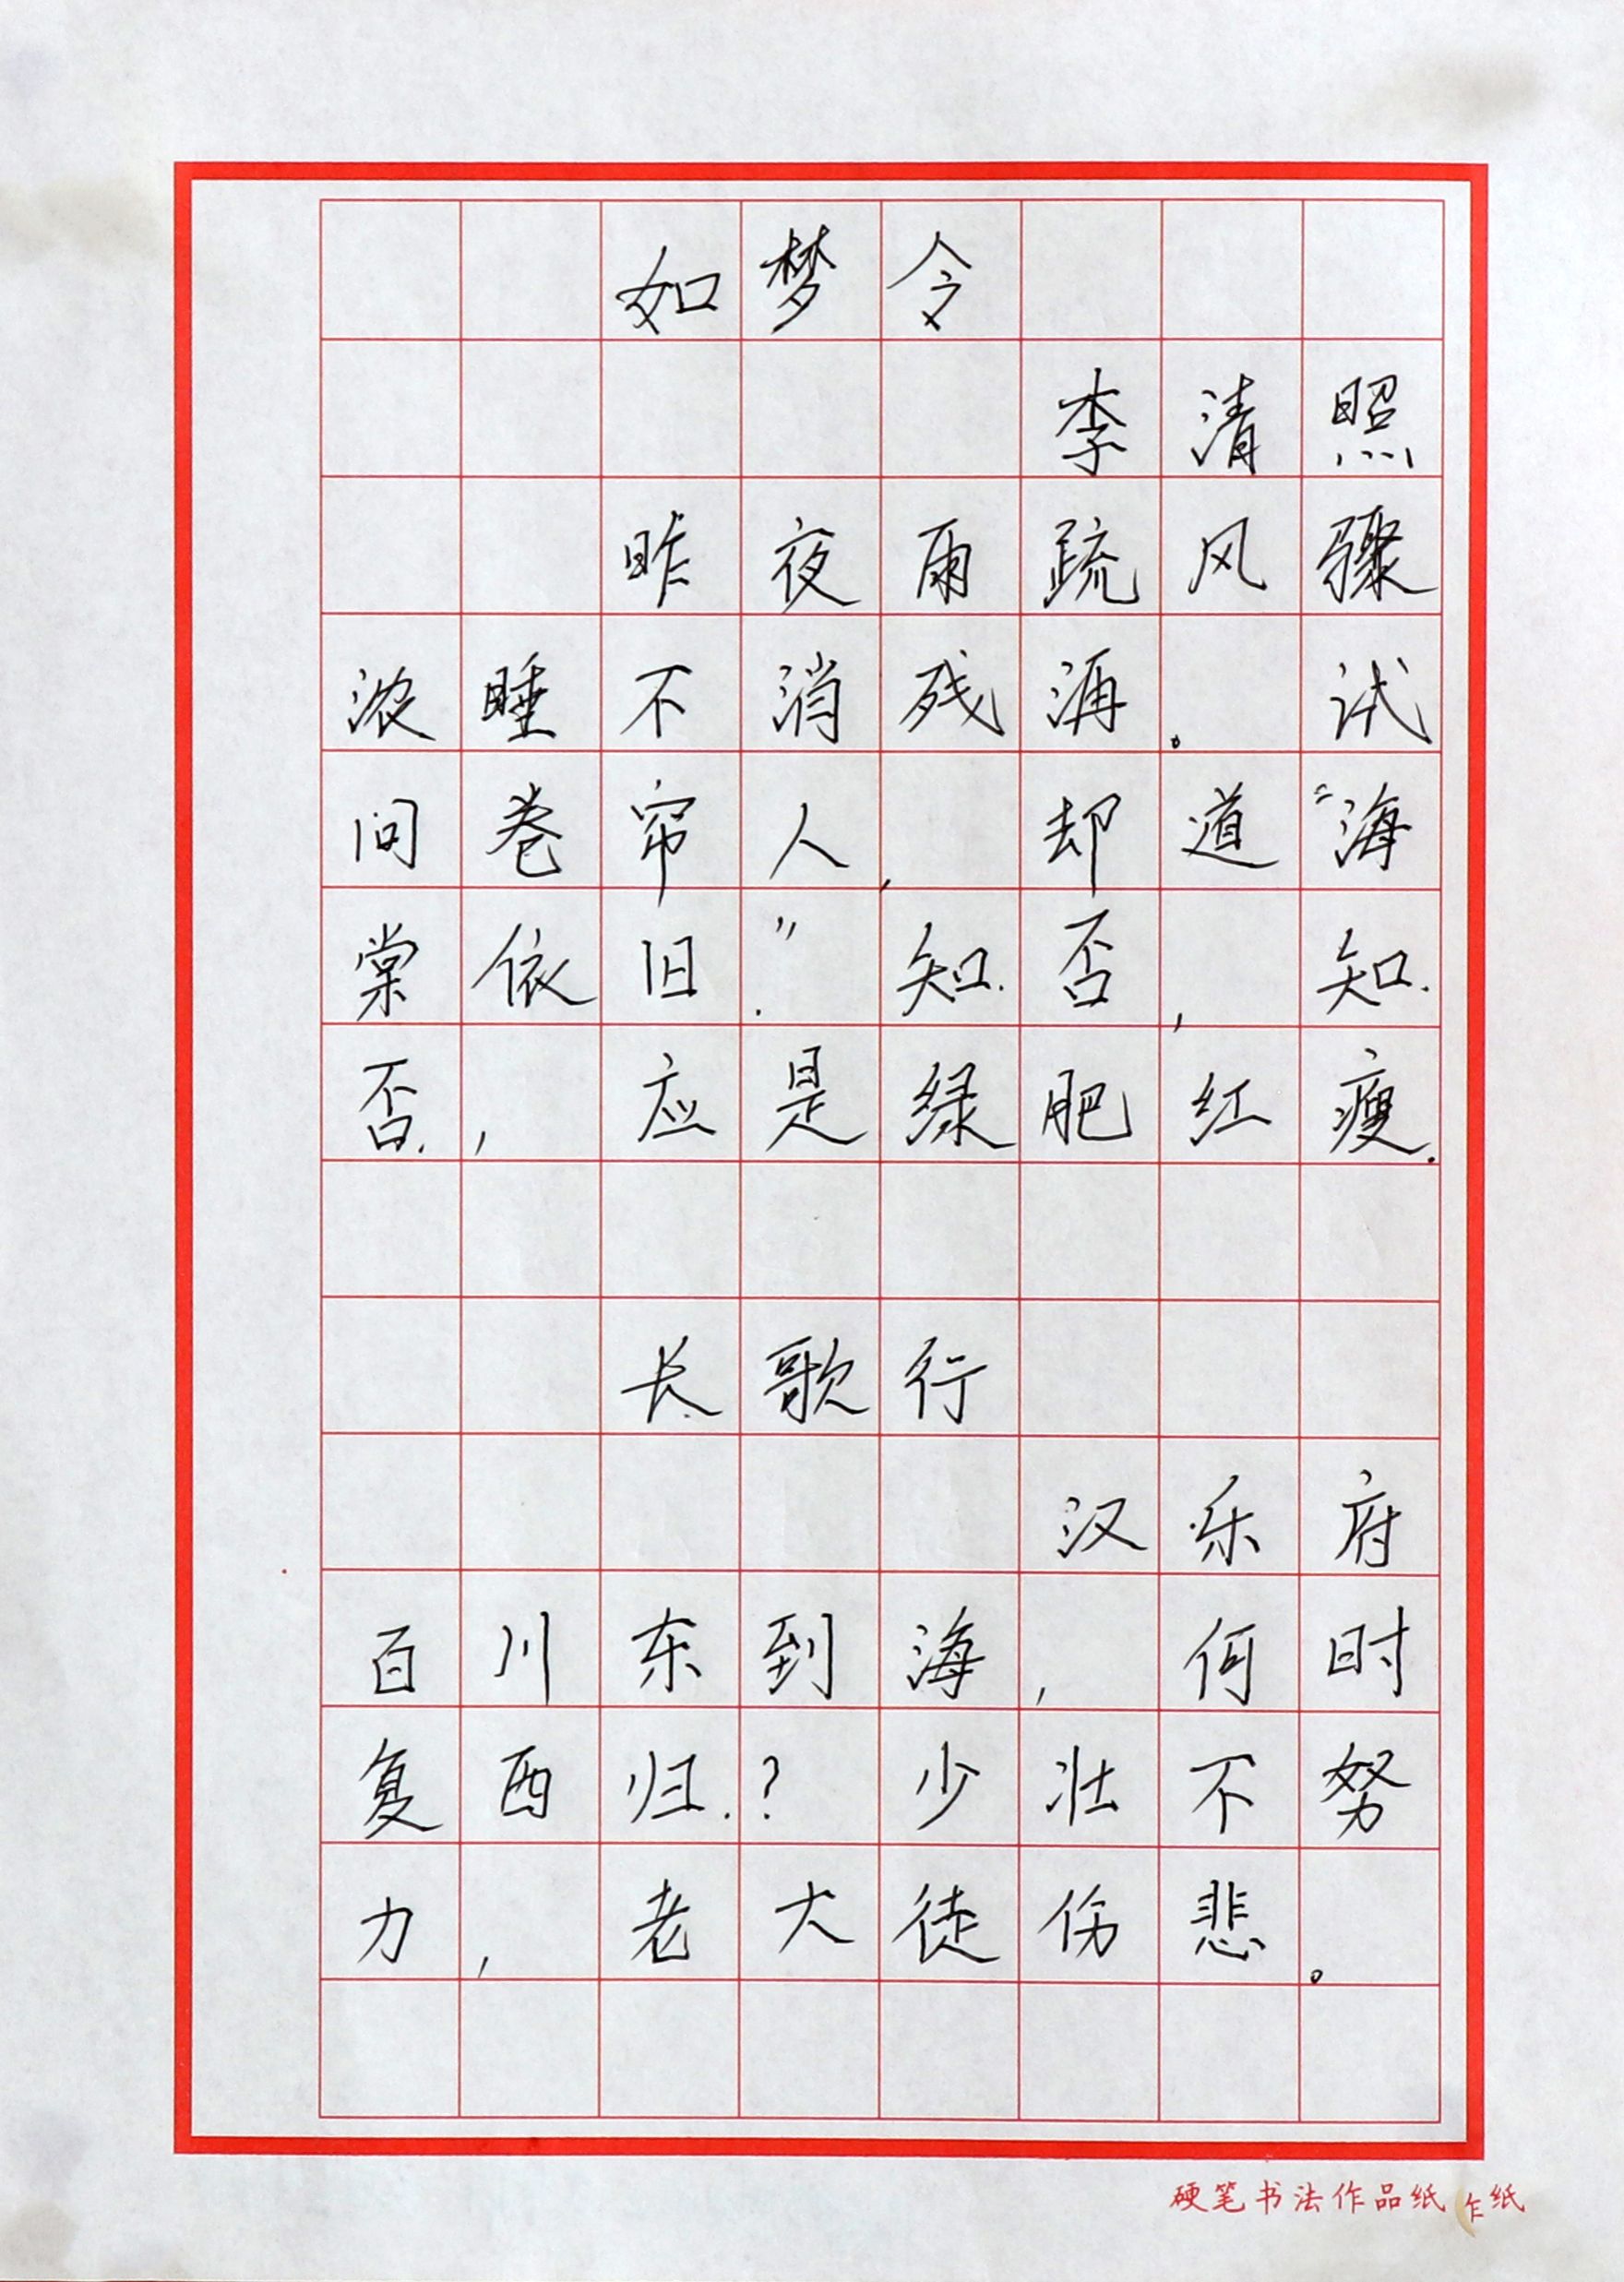 如梦令
李清照
昨夜雨疏风骤
浓睡不消残酒。试
问卷帘人，却道“海
棠依旧.”知否，知
否，应是绿肥红瘦.
长歌行
汉乐府
百川东到海，何时
复西归？少壮不努
力，老大徒伤悲。
硬笔书法作品纸 乍纸